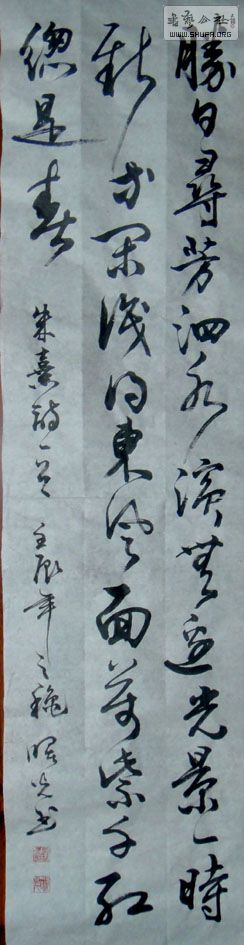 勝日尋芳泗水濱無邊光景一時
新等閑識得東風面萬紫千紅
總是春
朱熹詩一首 壬辰年之秋 曙光書
書藝公社
WWW.SHUFA.ORG